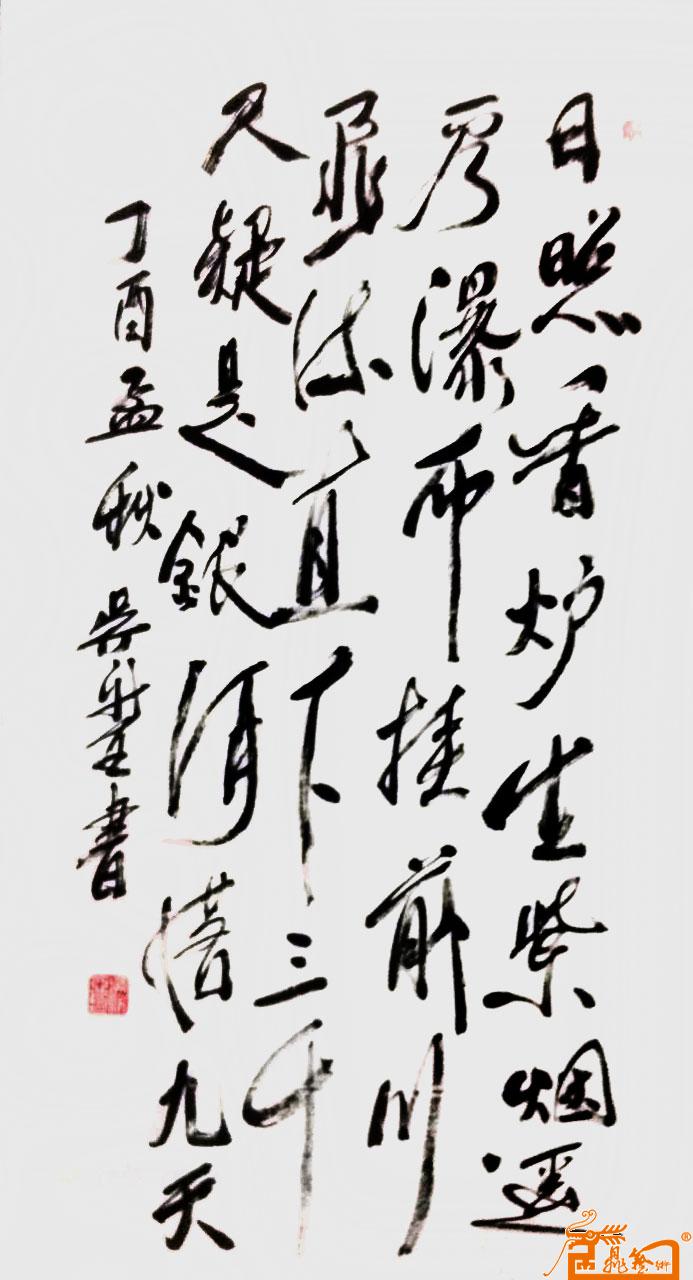 日照香炉生紫烟遥
看瀑布挂前川
飛流直下三千
尺疑是銀河落九天
丁酉孟秋吴書